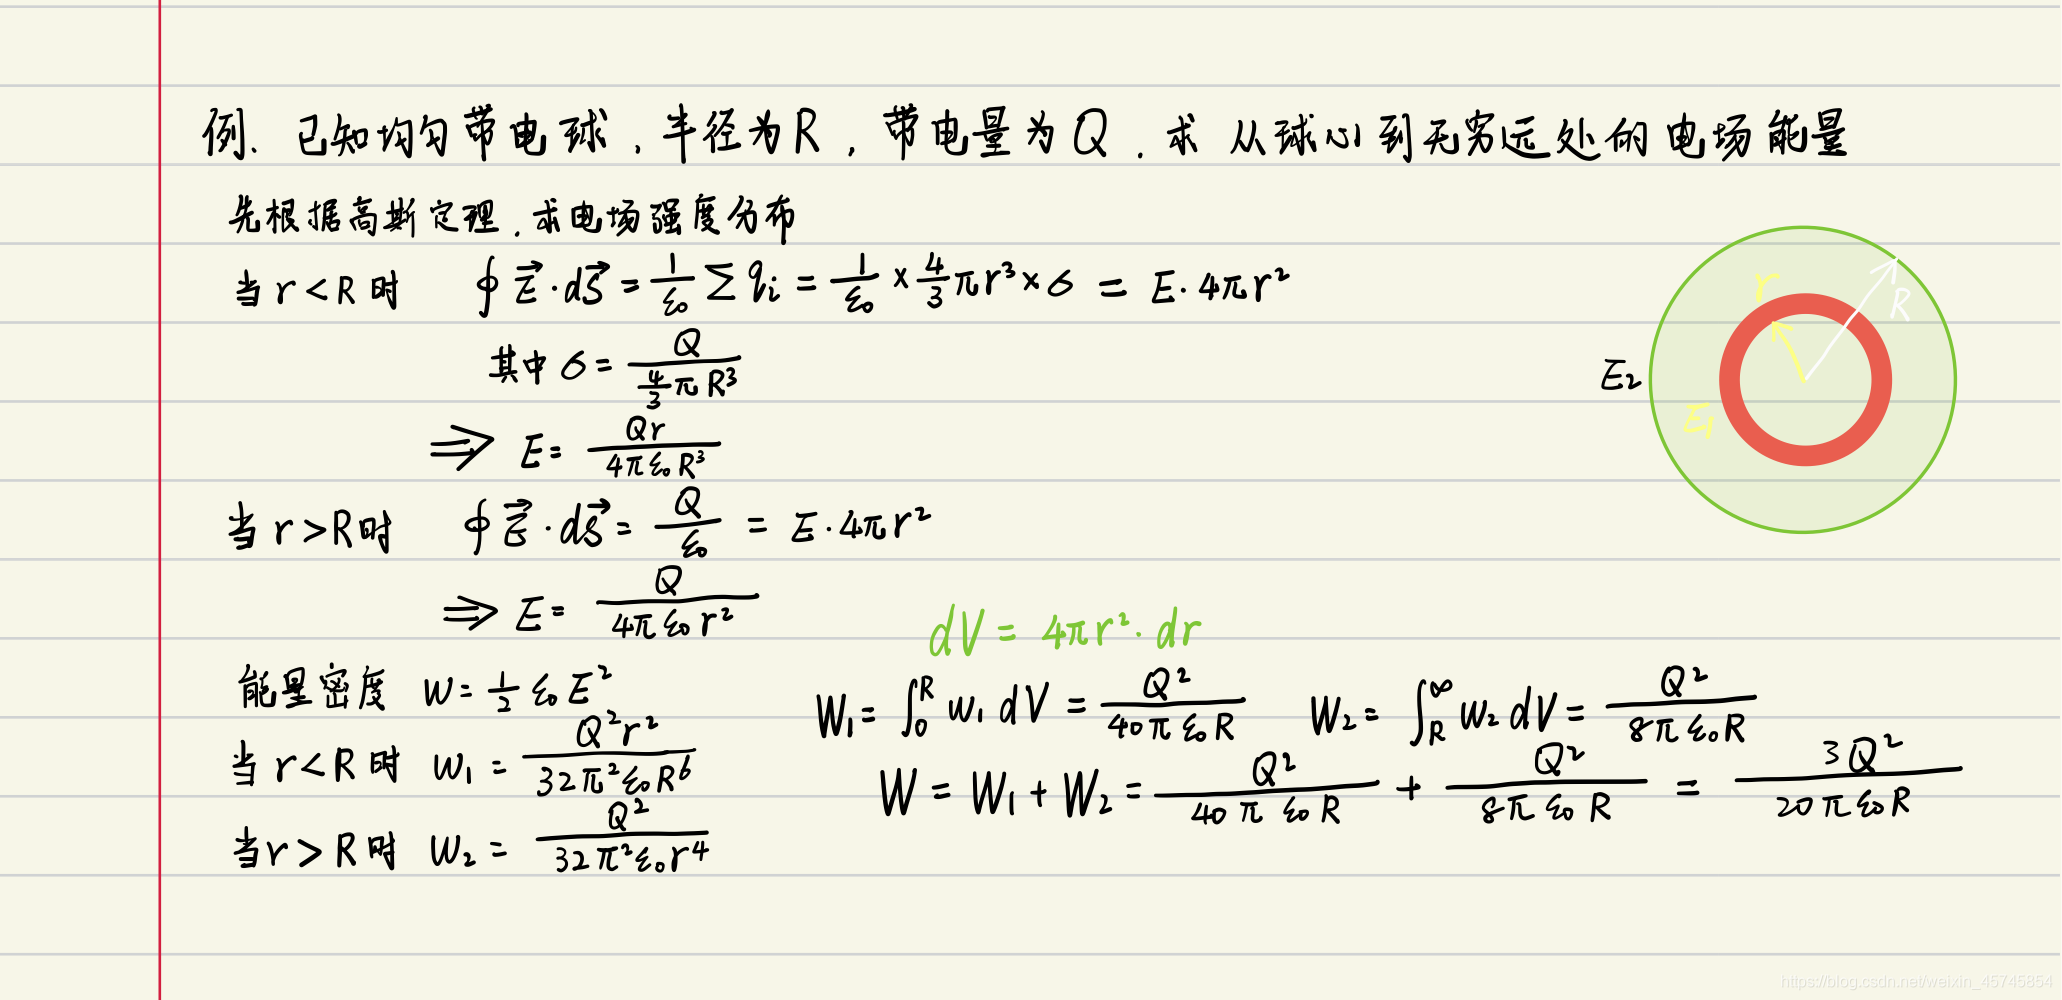 例. 已知均匀带电球，半径为R，带电量为Q. 求从球心到无穷远处的电场能量
先根据高斯定理，求电场强度分布
当 r < R 时 ∮ E⃗·dS⃗ = 1/ε₀ Σ qᵢ = 1/ε₀ × 4/3 πr³ × σ = E·4πr²
其中 σ = Q / (4/3 π R³)
⇒ E = Qr / (4πε₀R³)
当 r > R 时 ∮ E⃗·dS⃗ = Q/ε₀ = E·4πr²
⇒ E = Q / (4πε₀r²)
能量密度 w = 1/2 ε₀E²
当 r < R 时 w₁ = Q²r² / (32π²ε₀R⁶)
当 r > R 时 w₂ = Q² / (32π²ε₀r⁴)
dV = 4πr²·dr
W₁ = ∫₀ᴿ w₁ dV = Q² / (40πε₀R) W₂ = ∫_R^∞ w₂ dV = Q² / (8πε₀R)
W = W₁ + W₂ = Q² / (40πε₀R) + Q² / (8πε₀R) = 3Q² / (20πε₀R)
r
R
E₂
E₁
https://blog.csdn.net/weixin_45745854